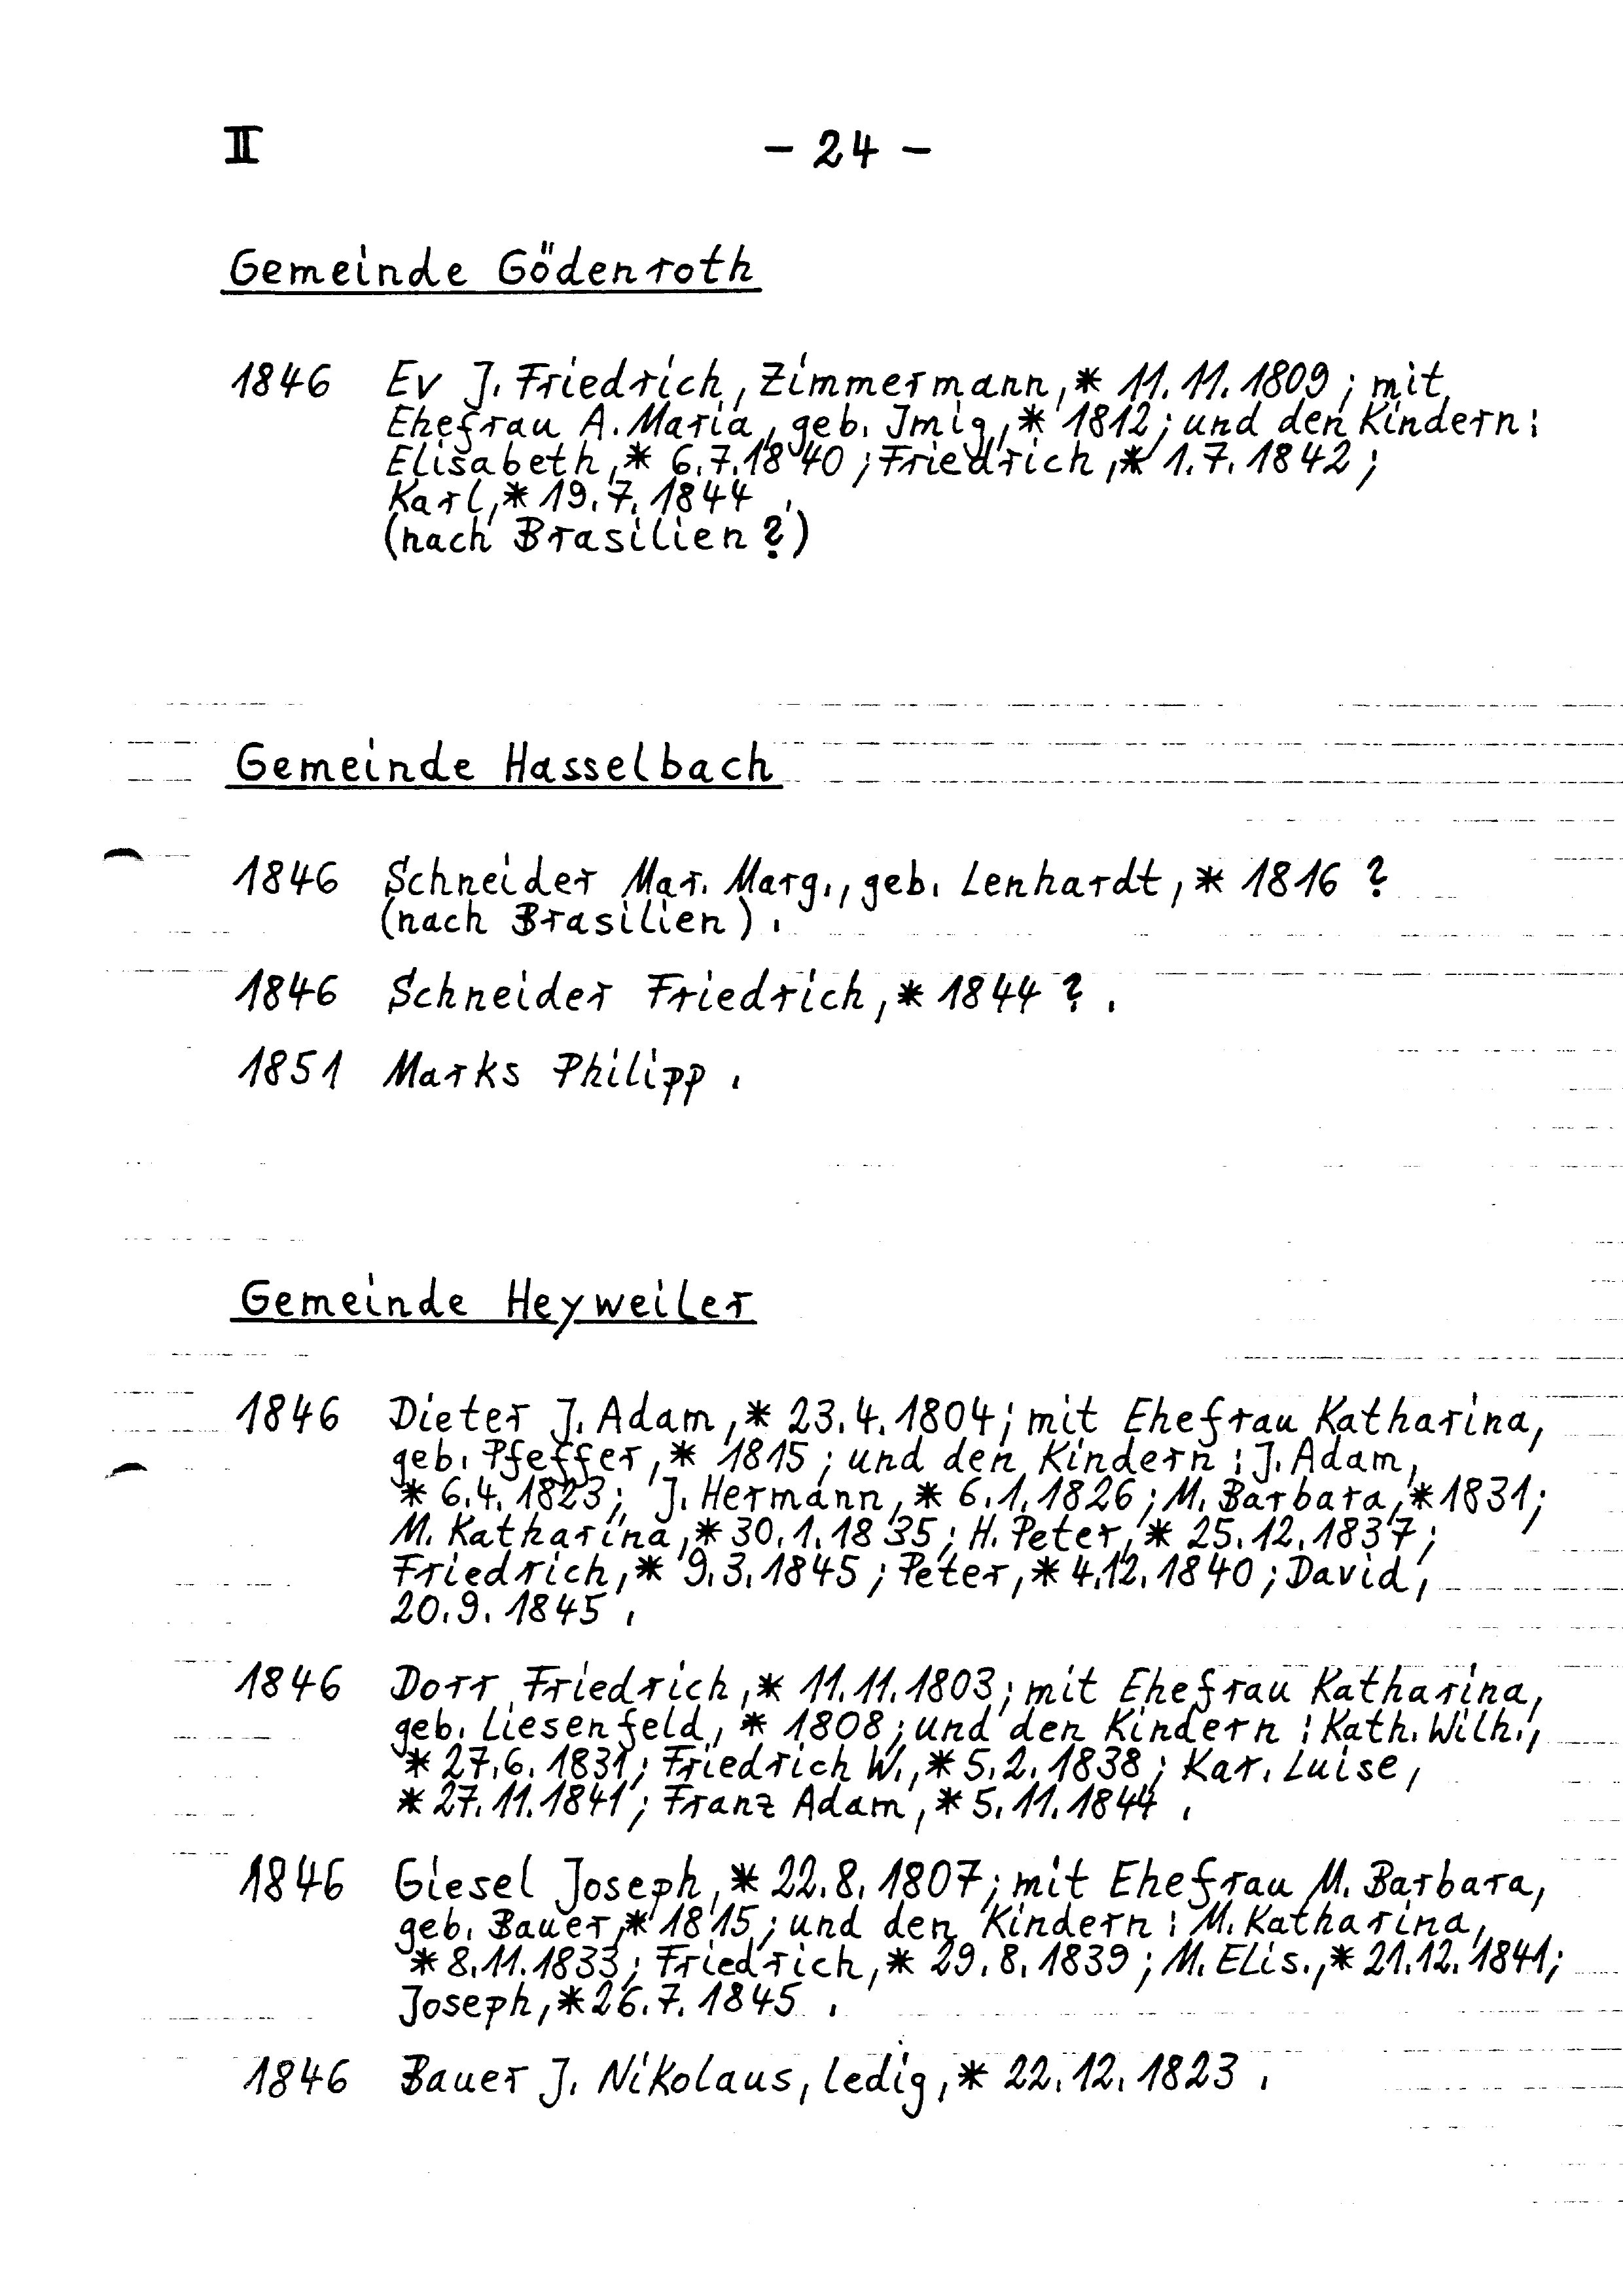 II
- 24 -
Gemeinde Gödenroth
1846 Ev J. Friedrich, Zimmermann, * 11.11.1809; mit
Ehefrau A. Maria, geb. Imig, * 1812; und den Kindern:
Elisabeth, * 6.7.1840; Friedrich, * 1.7.1842;
Karl, * 19.7.1844 .
(nach Brasilien?)
Gemeinde Hasselbach
1846 Schneider Mar. Marg., geb. Lenhardt, * 1816 ?
(nach Brasilien).
1846 Schneider Friedrich, * 1844 ? .
1851 Marks Philipp .
Gemeinde Heyweiler
1846 Dieter J. Adam, * 23.4.1804; mit Ehefrau Katharina,
geb. Pfeffer, * 1815; und den Kindern: J. Adam,
* 6.4.1823; J. Hermann, * 6.1.1826; M. Barbara, * 1831;
M. Katharina, * 30.1.1835; H. Peter, * 25.12.1837;
Friedrich, * 9.3.1845; Peter, * 4.12.1840; David,
20.9.1845 .
1846 Dorr Friedrich, * 11.11.1803; mit Ehefrau Katharina,
geb. Liesenfeld, * 1808; und den Kindern: Kath. Wilh.,
* 27.6.1831; Friedrich W., * 5.2.1838; Kar. Luise,
* 27.11.1841; Franz Adam, * 5.11.1844 .
1846 Giesel Joseph, * 22.8.1807; mit Ehefrau M. Barbara,
geb. Bauer, * 1815; und den Kindern: M. Katharina,
* 8.11.1833; Friedrich, * 29.8.1839; M. Elis., * 21.12.1841;
Joseph, * 26.7.1845 .
1846 Bauer J. Nikolaus, ledig, * 22.12.1823 .